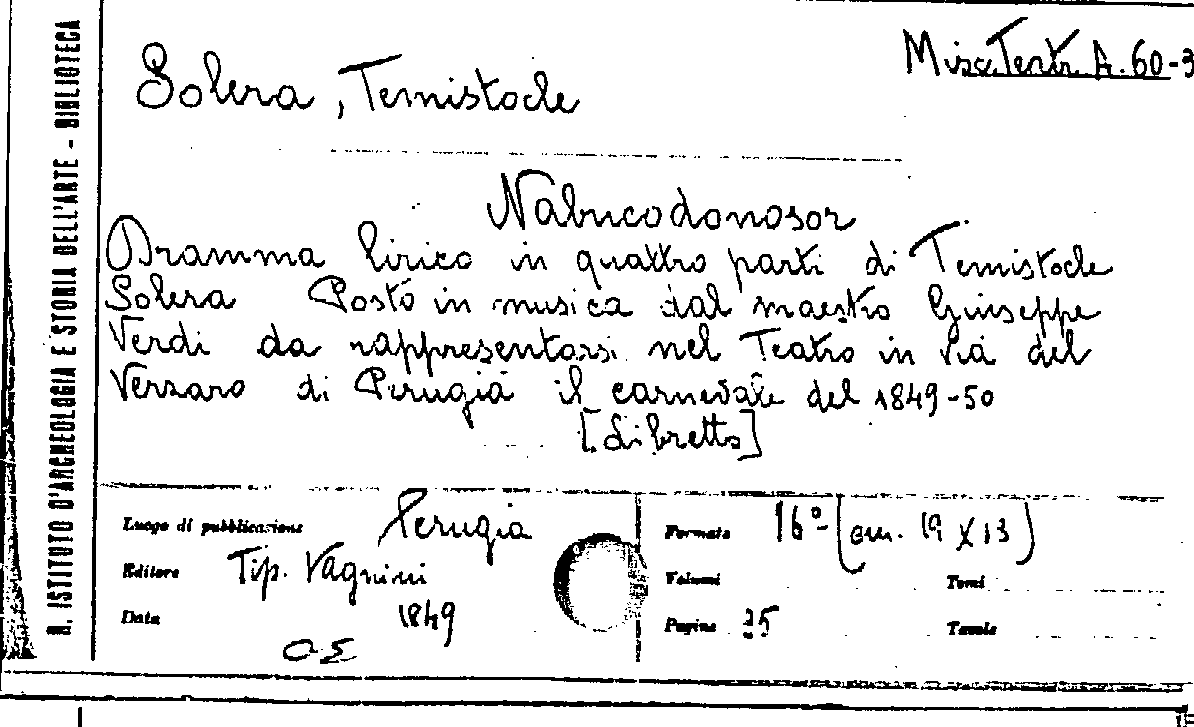 R. ISTITUTO D'ARCHEOLOGIA E STORIA DELL'ARTE - BIBLIOTECA
Misc. Teatr. A. 60-3
Solera, Temistocle
Nabucodonosor
Dramma lirico in quattro parti di Temistocle
Solera Posto in musica dal maestro Giuseppe
Verdi da rappresentarsi nel Teatro in Via del
Verzaro di Perugia il carnevale del 1849-50
[Libretto]
Luogo di pubblicazione Perugia
Editore Tip. Vagnini
Data 1849
Formato 16° (cm. 19 X 13)
Volumi Tomi
Pagine 35 Tavole